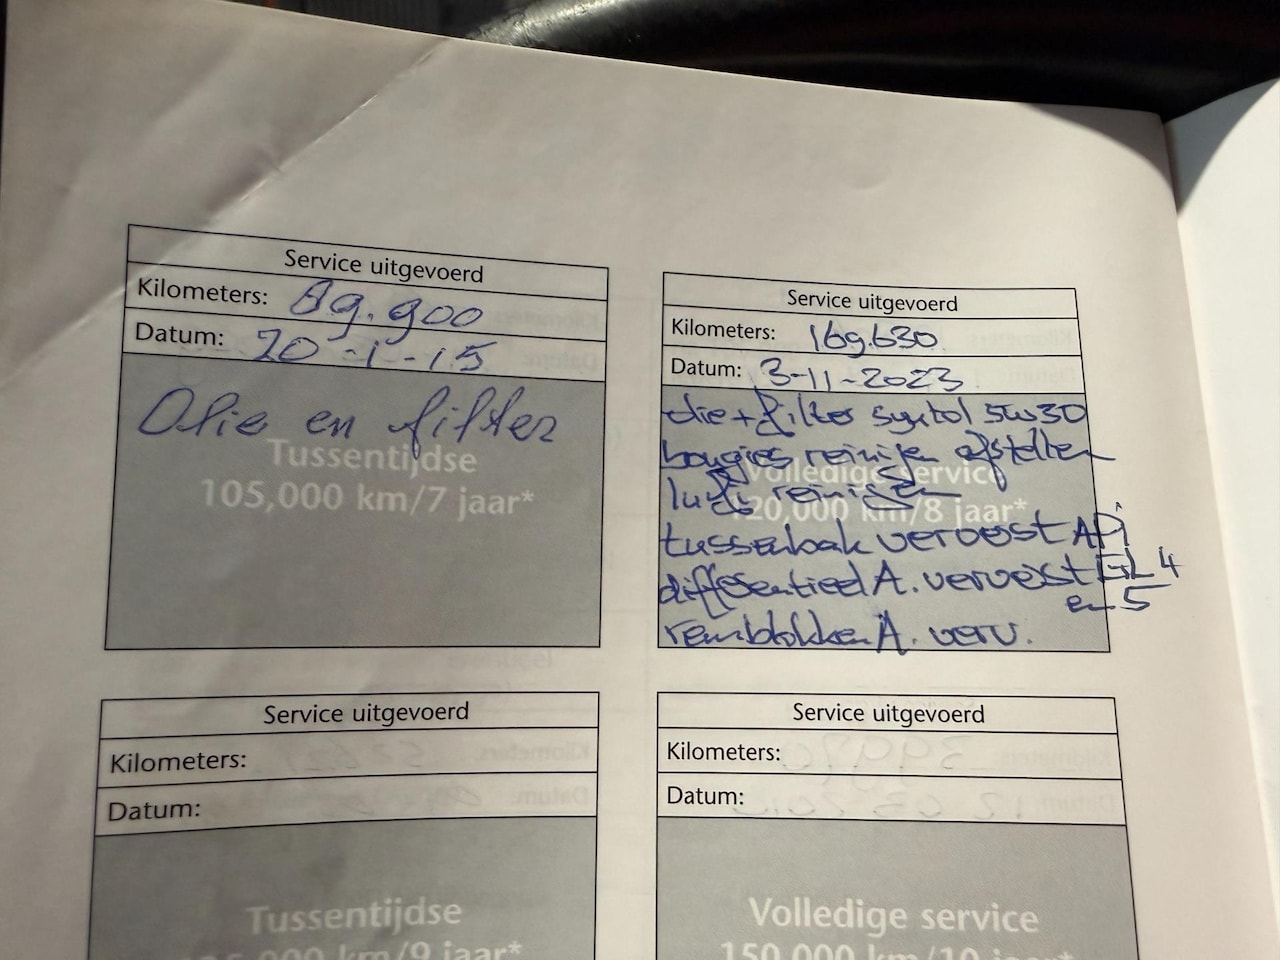 Service uitgevoerd
Kilometers: 89.900
Datum: 20-1-15
Olie en filter
Tussentijdse
105,000 km/7 jaar*
Service uitgevoerd
Kilometers: 169.630
Datum: 3-11-2023
olie + filter syntol 5w30
bougies reinigen afstellen
Volledige service
reinigen
120,000 km/8 jaar*
tussenbak ververst API
differentieel A. ververst GL 4
en 5
remblokken A. verv.
Service uitgevoerd
Kilometers:
Datum:
Tussentijdse
km/9 jaar*
Service uitgevoerd
Kilometers:
Datum:
Volledige service
150,000 km/10 jaar*